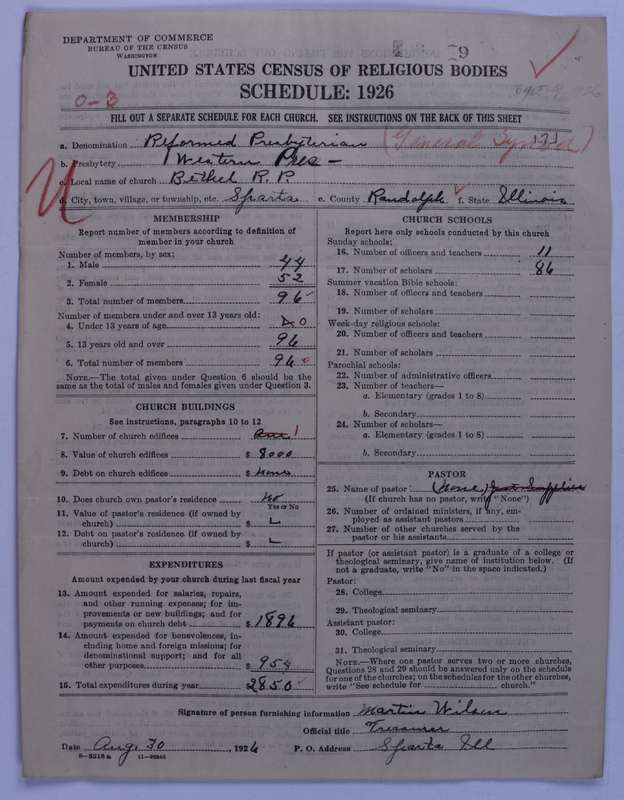 DEPARTMENT OF COMMERCE
BUREAU OF THE CENSUS
WASHINGTON
UNITED STATES CENSUS OF RELIGIOUS BODIES
SCHEDULE: 1926
Sept. 9, 1926
0-3
FILL OUT A SEPARATE SCHEDULE FOR EACH CHURCH. SEE INSTRUCTIONS ON THE BACK OF THIS SHEET
a. Denomination Reformed Presbyterian (General Synod) 121
b. Presbytery Western Pres -
c. Local name of church Bethel R. P.
d. City, town, village, or township, etc. Sparta e. County Randolph f. State Illinois
MEMBERSHIP
Report number of members according to definition of
member in your church
Number of members, by sex:
1. Male 44
2. Female 52
3. Total number of members 96
Number of members under and over 13 years old:
4. Under 13 years of age 0
5. 13 years old and over 96
6. Total number of members 96
NOTE.—The total given under Question 6 should be the
same as the total of males and females given under Question 3.
CHURCH BUILDINGS
See instructions, paragraphs 10 to 12
7. Number of church edifices one 1
8. Value of church edifices $ 8000
9. Debt on church edifices $ none
10. Does church own pastor's residence No
Yes or No
11. Value of pastor's residence (if owned by
church) $
12. Debt on pastor's residence (if owned by
church) $
EXPENDITURES
Amount expended by your church during last fiscal year
13. Amount expended for salaries, repairs,
and other running expenses; for im-
provements or new buildings; and for
payments on church debt $ 1896
14. Amount expended for benevolences, in-
cluding home and foreign missions; for
denominational support; and for all
other purposes $ 954
15. Total expenditures during year 2850
CHURCH SCHOOLS
Report here only schools conducted by this church
Sunday schools:
16. Number of officers and teachers 11
17. Number of scholars 86
Summer vacation Bible schools:
18. Number of officers and teachers
19. Number of scholars
Week-day religious schools:
20. Number of officers and teachers
21. Number of scholars
Parochial schools:
22. Number of administrative officers
23. Number of teachers—
a. Elementary (grades 1 to 8)
b. Secondary
24. Number of scholars—
a. Elementary (grades 1 to 8)
b. Secondary
PASTOR
25. Name of pastor (none) Just Supplies
(If church has no pastor, write "None")
26. Number of ordained ministers, if any, em-
ployed as assistant pastors
27. Number of other churches served by the
pastor or his assistants
If pastor (or assistant pastor) is a graduate of a college or
theological seminary, give name of institution below. (If
not a graduate, write "No" in the space indicated.)
Pastor:
28. College
29. Theological seminary
Assistant pastor:
30. College
31. Theological seminary
NOTE.—Where one pastor serves two or more churches,
Questions 28 and 29 should be answered only on the schedule
for one of the churches; on the schedules for the other churches,
write "See schedule for church."
Signature of person furnishing information Martin Wilson
Official title Treasurer
Date Aug. 30, 1926 P. O. Address Sparta Ill
8—5518a